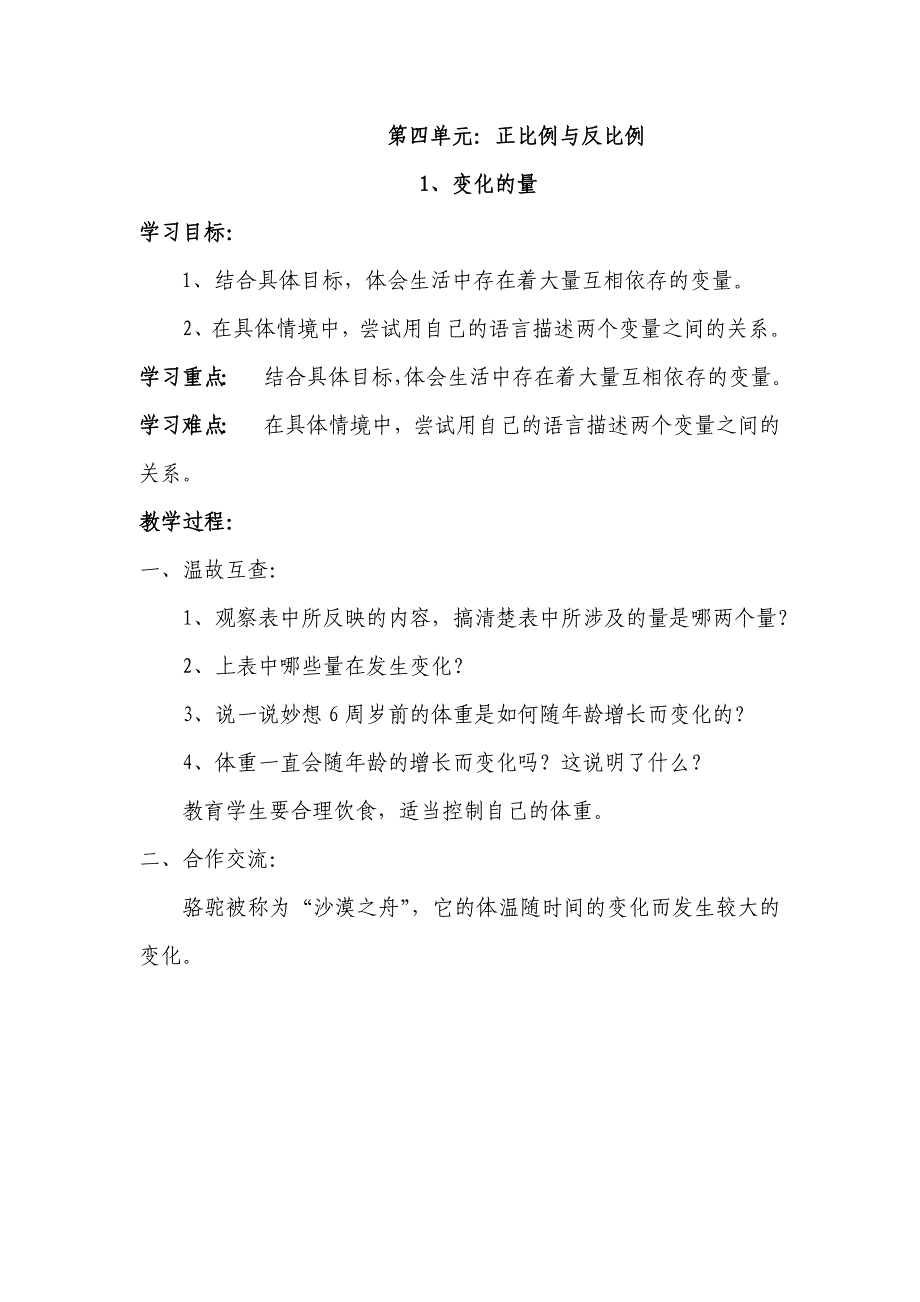 第四单元：正比例与反比例
1、变化的量
学习目标：
1、结合具体目标，体会生活中存在着大量互相依存的变量。
2、在具体情境中，尝试用自己的语言描述两个变量之间的关系。
学习重点： 结合具体目标，体会生活中存在着大量互相依存的变量。
学习难点： 在具体情境中，尝试用自己的语言描述两个变量之间的
关系。
教学过程：
一、温故互查：
1、观察表中所反映的内容，搞清楚表中所涉及的量是哪两个量？
2、上表中哪些量在发生变化？
3、说一说妙想 6 周岁前的体重是如何随年龄增长而变化的？
4、体重一直会随年龄的增长而变化吗？这说明了什么？
教育学生要合理饮食，适当控制自己的体重。
二、合作交流：
骆驼被称为“沙漠之舟”，它的体温随时间的变化而发生较大的
变化。